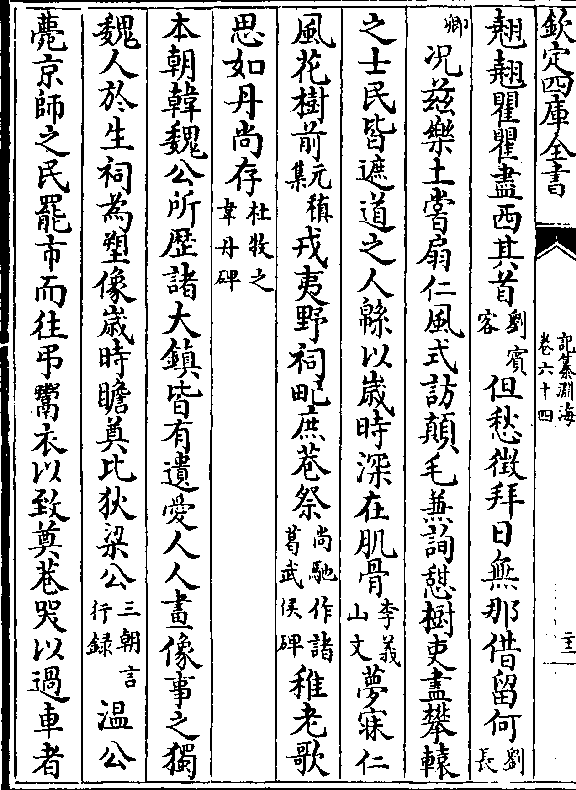 欽定四庫全書
記纂淵海
卷六十四
翹翹瞿瞿盡西其首劉賓客但愁徵拜日無那借留何劉長
卿況兹樂土嘗扇仁風式訪顛毛兼詢憇樹吏盡攀轅
之士民皆遮道之人緜以歳時深在肌骨李義山文夢寐仁
風花樹前元稹集戎夷野祠甿庶巷祭尚馳作諸葛武侯碑稚老歌
思如丹尚存杜牧之韋丹碑
本朝韓魏公所歴諸大鎮皆有遺愛人人畫像事之獨
魏人於生祠為塑像歳時瞻奠比狄梁公三朝言行録溫公
薨京師之民罷市而往弔鬻衣以致奠巷哭以過車者